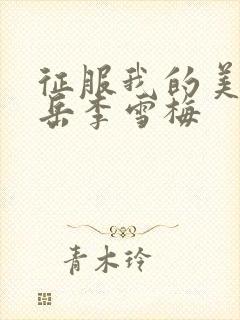 征服我的美
岳李雪梅
青木玲